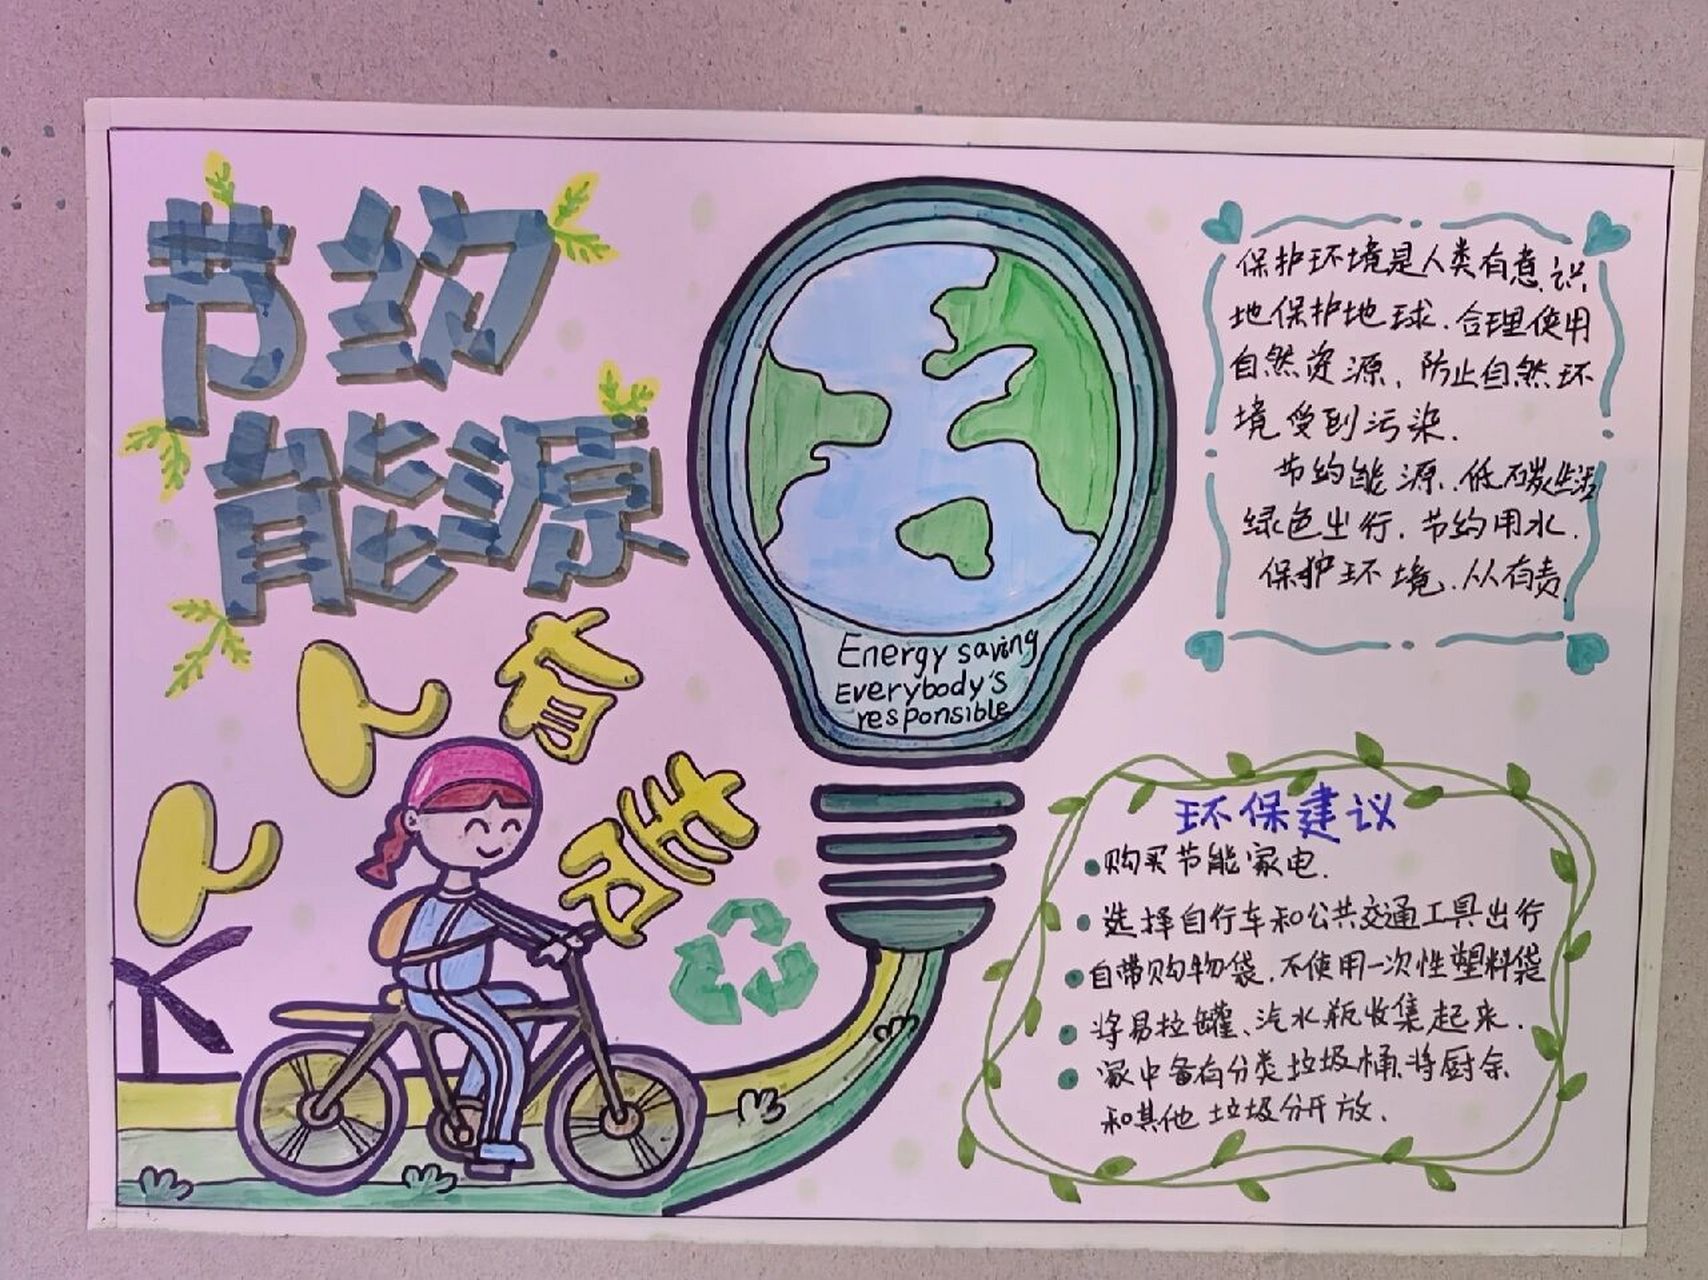 节约
能源
人人有责
Energy saving
Everybody's
responsible
保护环境是人类有意识
地保护地球.合理使用
自然资源、防止自然环
境受到污染.
节约能源.低碳生活
绿色出行.节约用水.
保护环境、从有责
环保建议
购买节能家电.
选择自行车和公共交通工具出行
自带购物袋.不使用一次性塑料袋
将易拉罐、汽水瓶收集起来.
家中备有分类垃圾桶.将厨余
和其他垃圾分开放.